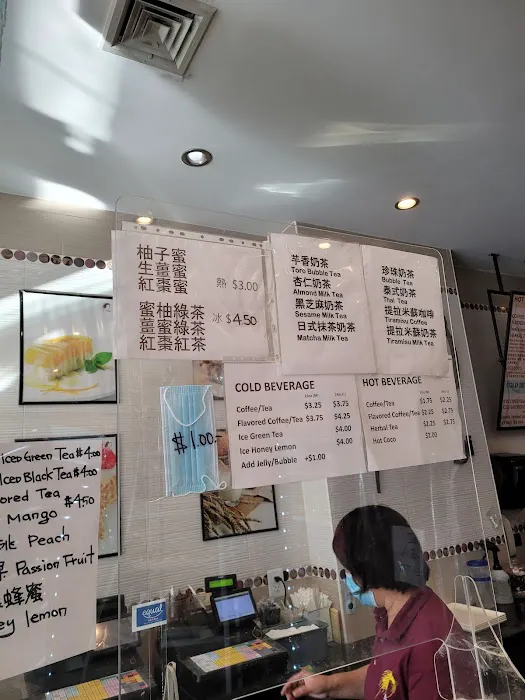 柚子蜜
生薑蜜
紅棗蜜
熱 $3.00
蜜柚綠茶
薑蜜綠茶
紅棗紅茶
冰 $4.50
芋香奶茶
Toro Bubble Tea
杏仁奶茶
Almond Milk Tea
黑芝麻奶茶
Sesame Milk Tea
日式抹茶奶茶
Matcha Milk Tea
珍珠奶茶
Bubble Tea
泰式奶茶
Thai Tea
提拉米蘇咖啡
Tiramisu Coffee
提拉米蘇奶茶
Tiramisu Milk Tea
COLD BEVERAGE
Coffee/Tea $3.25 $3.75
Flavored Coffee/Tea $3.75 $4.25
Ice Green Tea $4.00
Ice Honey Lemon $4.00
Add Jelly/Bubble +$1.00
HOT BEVERAGE
Coffee/Tea $1.75 $2.25
Flavored Coffee/Tea $2.25
Herbal Tea
Hot Coco
$1.00
Iced Green Tea $4.00
Iced Black Tea $4.00
ored Tea
Mango $4.50
Peach
Passion Fruit
蜂蜜
ey lemon
equal